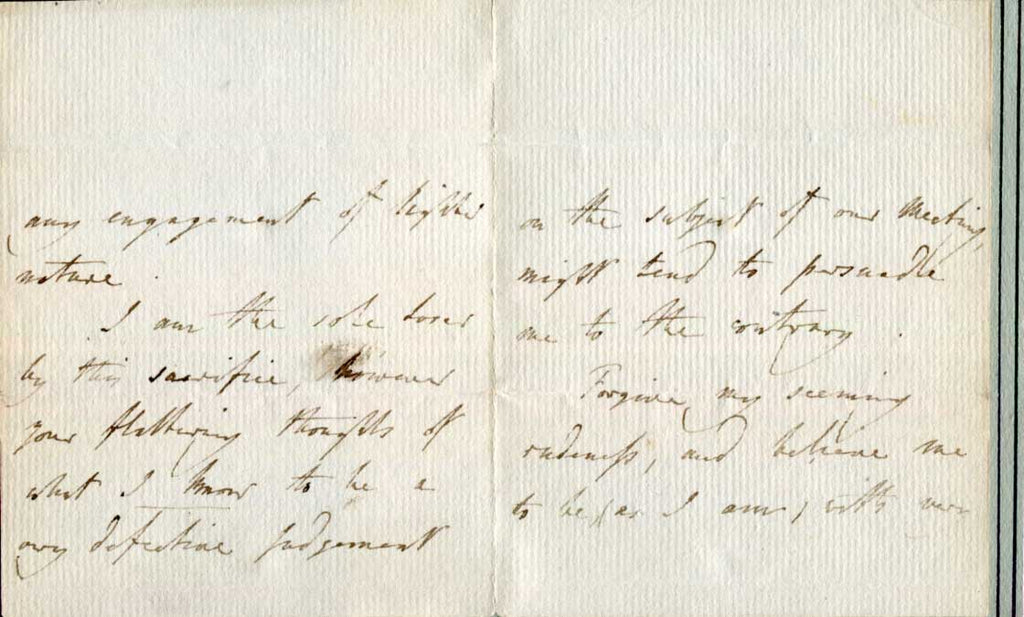 any engagement of lighter
nature.
I am the sole loser
by this sacrifice, however
your flattering thoughts of
what I know to be a
very defective judgement
on the subject of our Meeting,
might tend to persuade
me to the contrary.
Forgive my seeming
rudeness, and believe me
to be, (as I am) with very